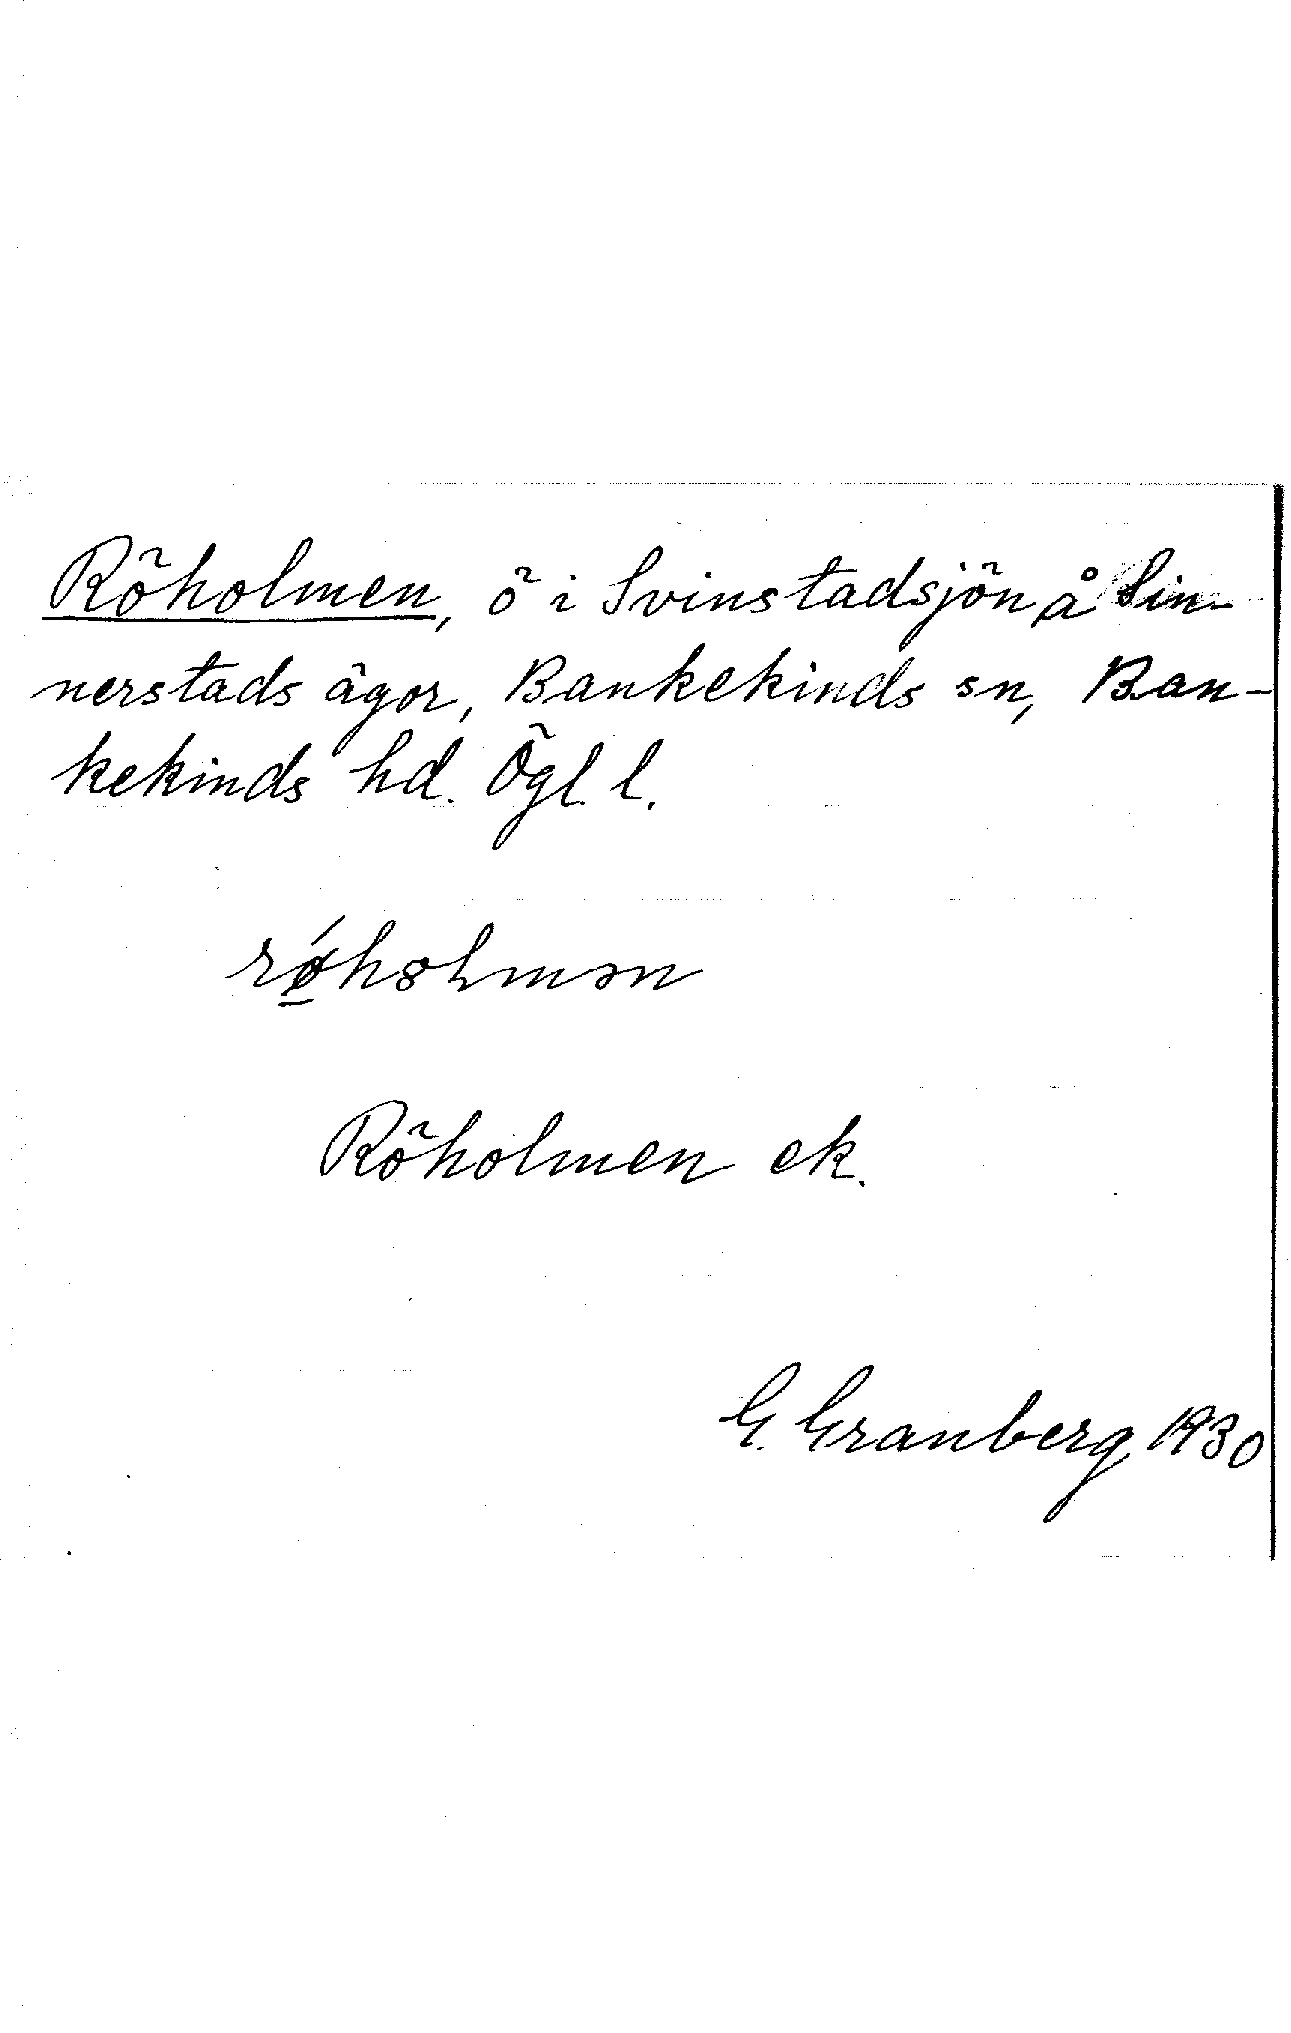 Röholmen, ö i Svinstadsjön å Sin-
nerstads ägor, Bankekinds sn, Ban-
kekinds hd. Ögl. l.
Röholmen ek.
G. Granberg 1930